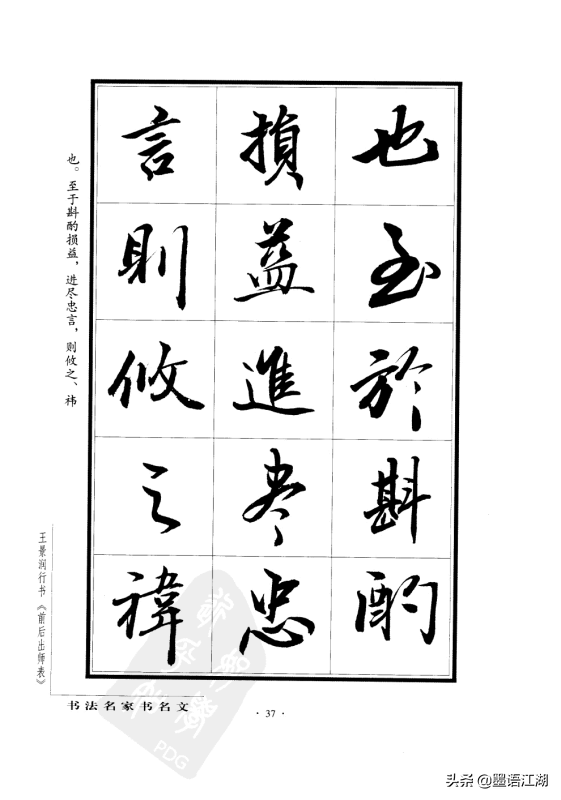 也至於斟酌
損益進尽忠
言則攸之禕
也。至于斟酌损益，进尽忠言，则攸之、祎
王景润行书《前后出师表》
书法名家书名文
·37·
PDG
头条@墨语江湖